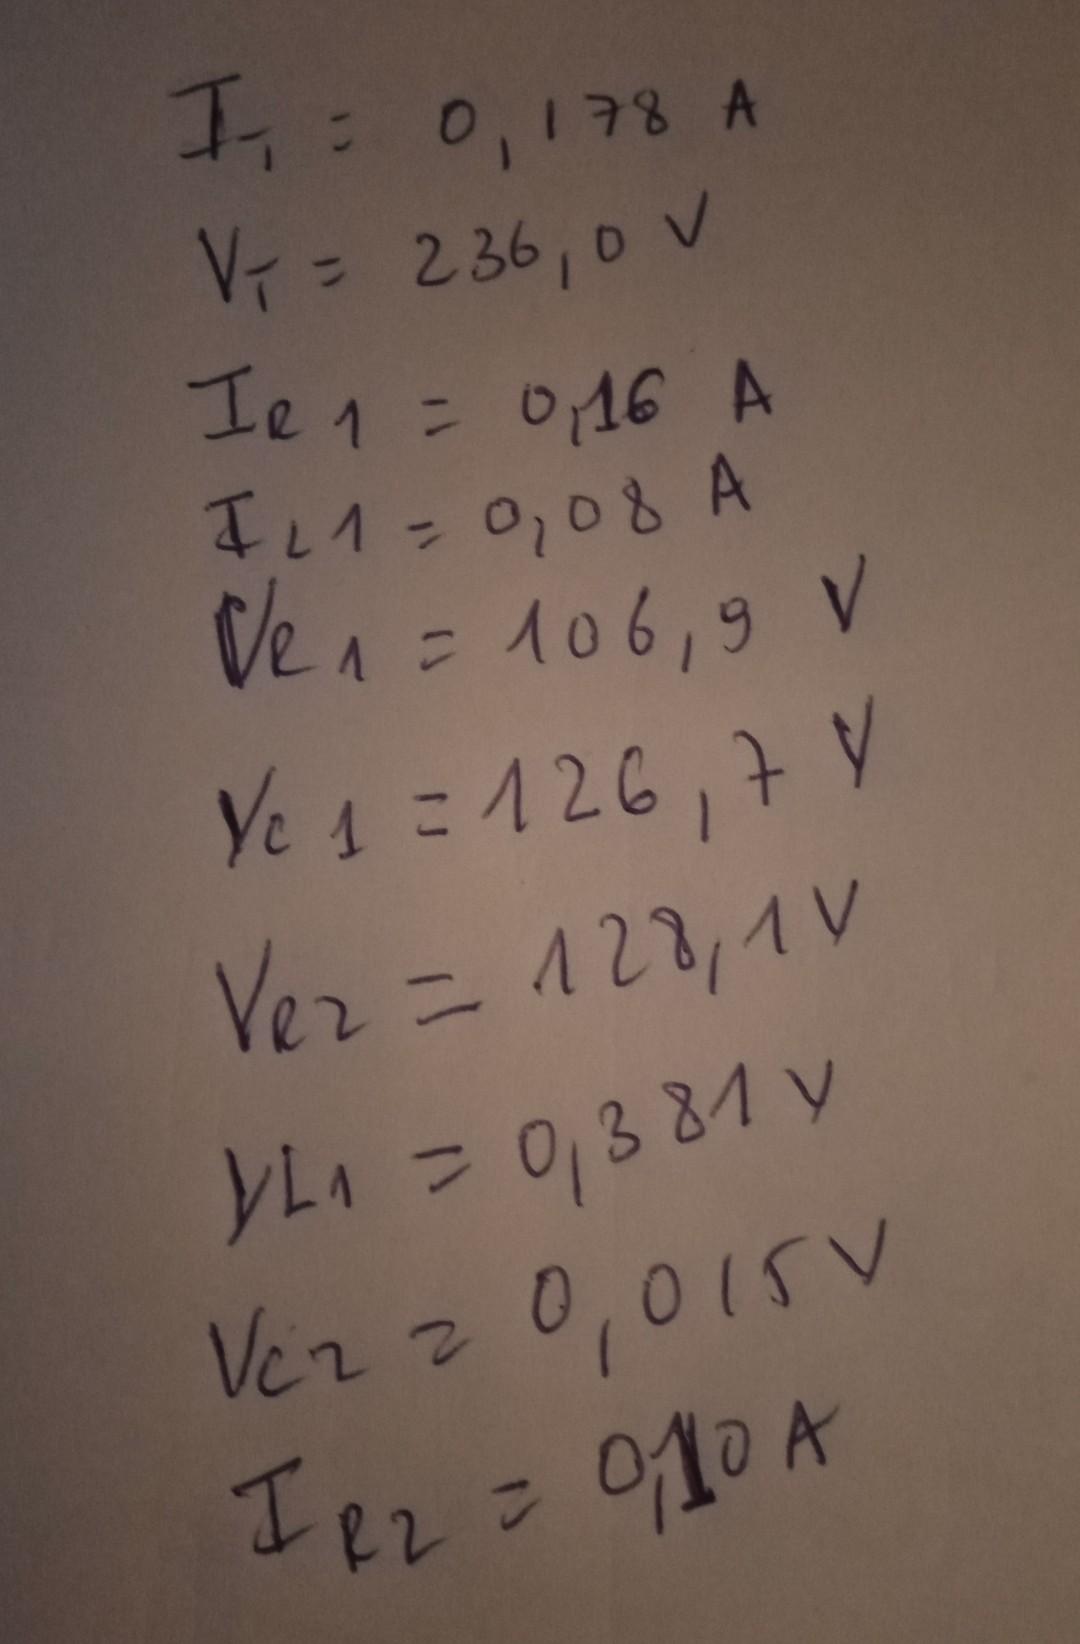 I_T = 0,178 A
V_T = 236,0 V
I_R1 = 0,16 A
I_L1 = 0,08 A
V_R1 = 106,9 V
V_C1 = 126,7 V
V_R2 = 128,1 V
V_L1 = 0,381 V
V_C2 = 0,015 V
I_R2 = 0,10 A